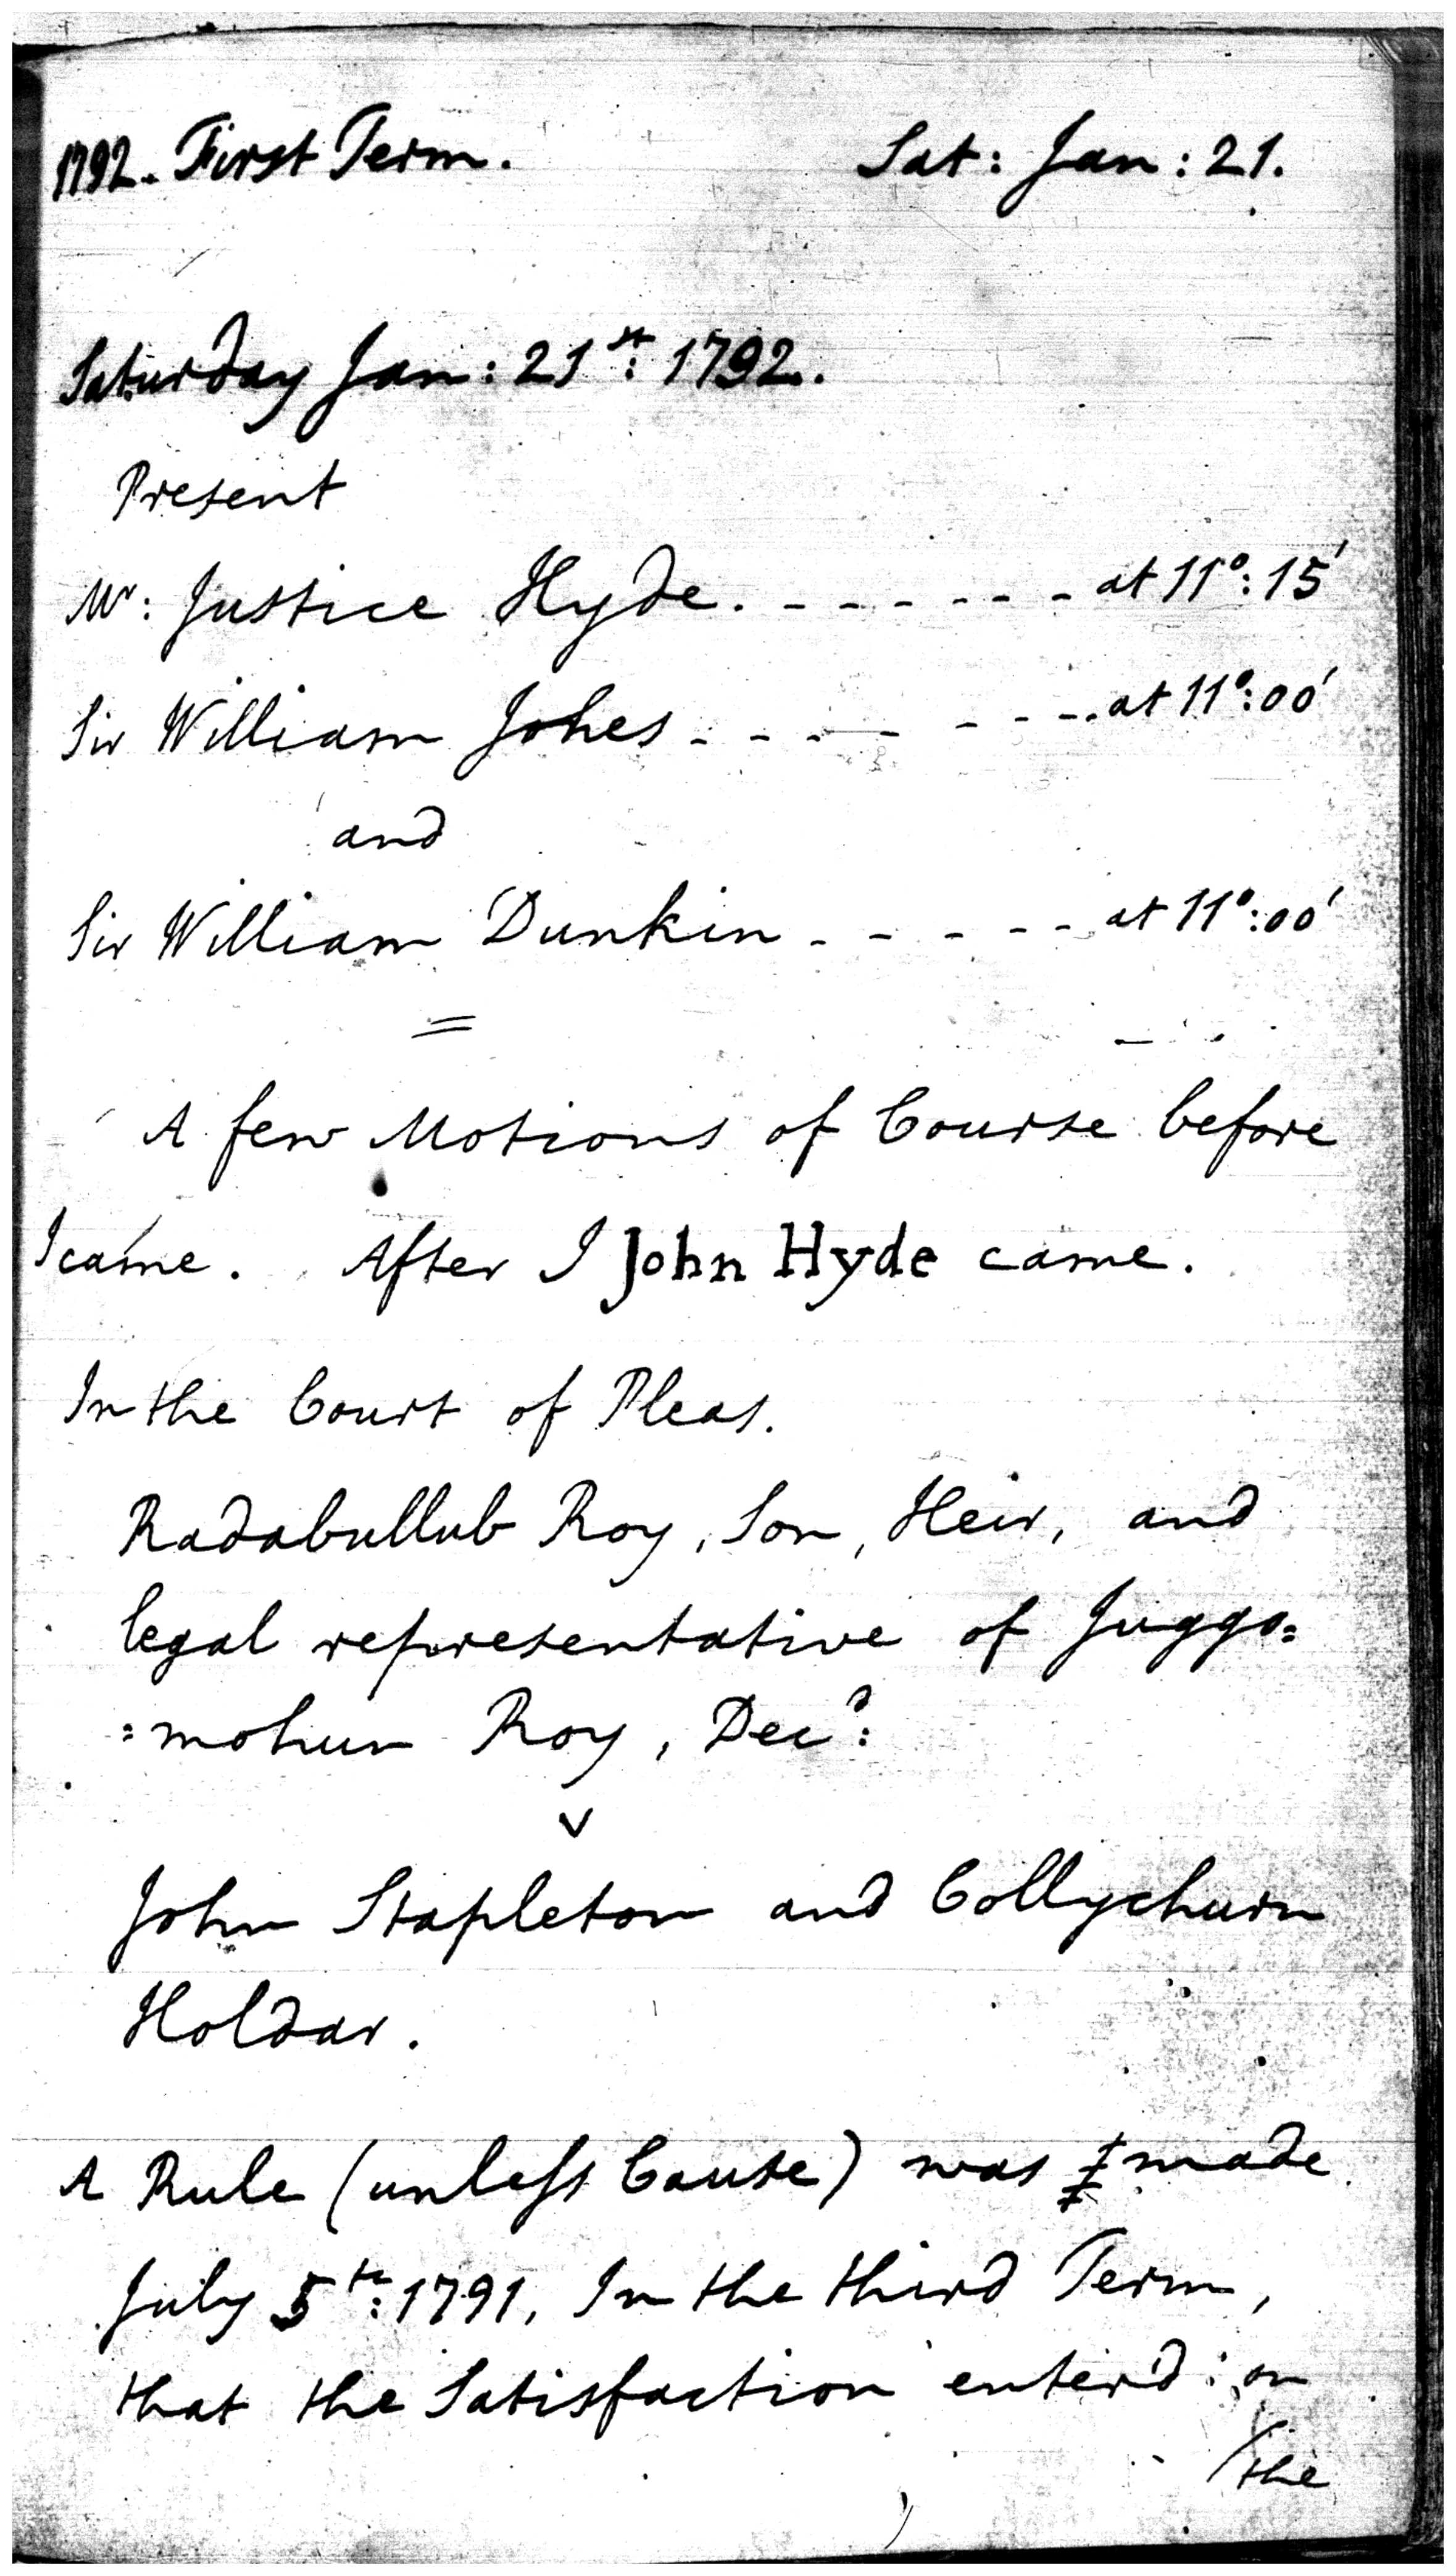 1792. First Term. Sat: Jan: 21.
Saturday Jan: 21st: 1792.
Present
Mr: Justice Hyde. - - - - - - - at 11°: 15'
Sir William Jones - - - - - - - . at 11°: 00'
and
Sir William Dunkin - - - - - - at 11°: 00'
=
A few Motions of Course before
I came. After I John Hyde came.
In the Court of Pleas.
Radabullub Roy, Son, Heir, and
legal representative of Juggo=
=mohun Roy, Decd:
v
John Stapleton and Collychurn
Holdar.
A Rule (unless Cause) was ‡ made
July 5th: 1791, In the third Term,
that the Satisfaction enter'd on
the